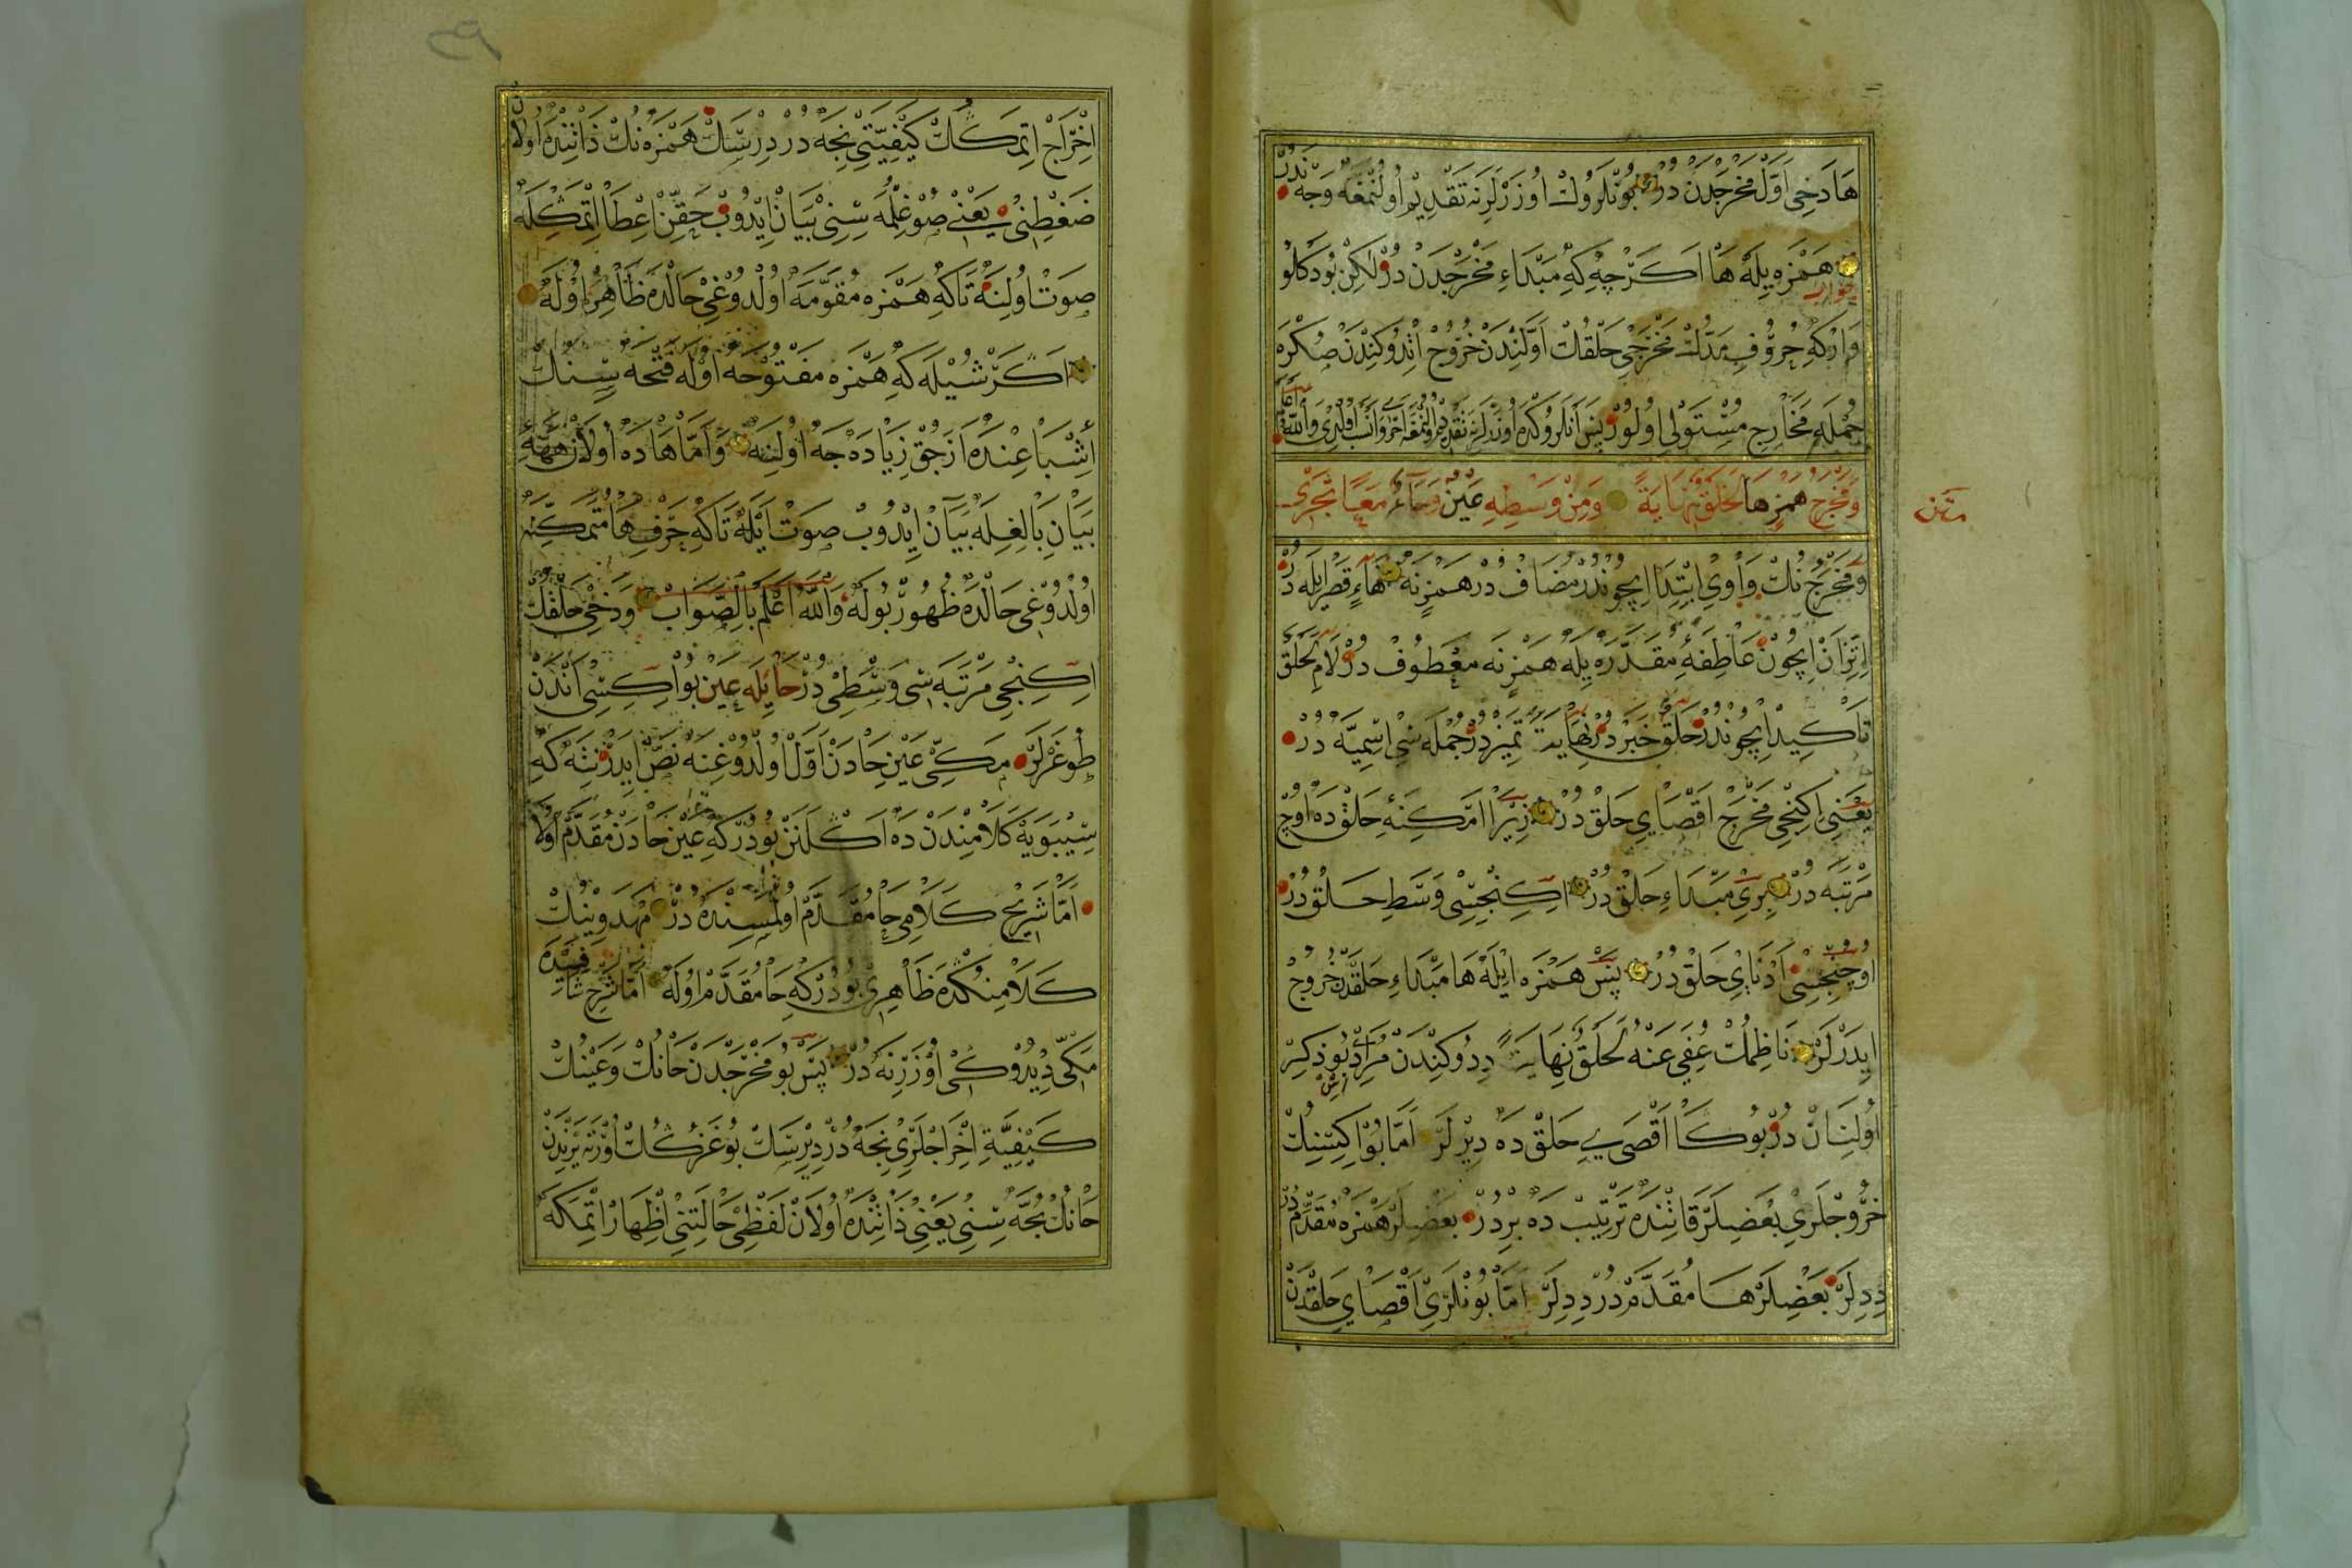 هَا دَخِى اَوَّلْ مَخْرَجْدَنْ دُرْ بُونْلَرُوكْ اُوزَرْلَرِنَه تَقْدِيمْ اُولُنْمَغَه وَجْه نَدُرْ
جواب هَمْزَه يِلَه هَا اَكَرْچِه كِه مَبْدَاءِ مَخْرَجْدَنْ دُرْ لٰكِنْ بُو دَكْلُو
وَارْكِه حُرُوفِ مَدُّكْ مَخْرَجِى حَلْقُكْ اَوَّلِنْدَنْ خُرُوجْ اِتْدُوكِنْدَنْ صُكْرَه
جُمْلَه مَخَارِجِ مُسْتَوْلِى اُولُورْ پَسْ اَنْلَرُوكْدَه اُوزَرْلَرِنَه تَقْدِيمْ اُولُنْمَغَه وَاَنْسَبْ اُولْدِى وَاللّٰهُ اَعْلَمْ
وَمَخْرَجُ هَمْزٍ هَا لَحَلْقٌ نِهَايَةً وَمِنْ وَسْطِهِ عَيْنٌ وَحَاءٌ مَعًا تَجْرِى
متن
وَمَخْرَجُ نُكْ وَاوِى اِبْتِدَا اِيچُونْدُرْ مُضَافْ دُرْ هَمْزِنَه هَاءِ قَصْرِ اِيلَه دُرْ
اِتِّزَانْ اِيچُونْ عَاطِفَۀِ مُقَدَّرَه يِلَه هَمْزِنَه مَعْطُوفْ دُرْ لَامِ لَحَلْقٌ
تَأكِيدْ اِيچُونْدُرْ حَلْقٌ خَبَرْ دُرْ نِهَايَةً تَمِيزْدُرْ جُمْلَه سِى اِسْمِيَّه دُرْ
يَعْنِى اِكِنْجِى مَخْرَجْ اَقْصَاىِ حَلْقْ دُرْ زِيرَا اَمْكِنَۀِ حَلْقْ دَه اُوچْ
مَرْتَبَه دُرْ بِرِى مَبْدَاءِ حَلْقْ دُرْ اِكِنْجِسِى وَسَطِ حَلْقْ دُرْ
اُوچُنْجِسِى اَدْنَاىِ حَلْقْ دُرْ پَسْ هَمْزَه اِيلَه هَا مَبْدَاءِ حَلْقْدَنْ خُرُوجْ
اِيدَرْلَرْ نَاظِمُكْ عُفِىَ عَنْهُ لَحَلْقٌ نِهَايَةً دِدُوكِنْدَنْ مُرَادْ بُو ذِكِرْ
اُولِنَانْ دُرْ بُوكَا اَقْصَىِ حَلْقْ دَه دِيرْلَرْ اَمَّا بُو اِكِسِنِكْ
خُرُوجْلَرِى بَعْضِلَرْ قَاتِنْدَه تَرْتِيبْ دَه بِرْدُرْ بَعْضِلَرْ هَمْزَه مُقَدَّمْ دُرْ
دِدِلَرْ بَعْضِلَرْ هَا مُقَدَّمْ دُرْ دِدِلَرْ اَمَّا بُونْلَرِى اَقْصَاىِ حَلْقْدَنْ
اِخْرَاجْ اِتْمَكُكْ كَيْفِيَّتِى نِجَه دُرْ دِرْسَكْ هَمْزَه نُكْ ذَاتِنْدَه اُولَانْ
ضَغْطِنِى يَعْنِى صُوغِلْمَه سِنِى بَيَانْ اِيْدُوبْ حَقِّنْ اِعْطَا اِتْمَكْلَه
صَوْتْ اُولِنَه تَاكِه هَمْزَه مُقَوَّمَه اُولْدُوغِى حَالْدَه ظَاهِرْ اُولَه
اَكَرْ شُيْلَه كِه هَمْزَه مَفْتُوحَه اُولَه فَتْحَه سِنكْ
اِشْبَاعِنْدَه اَزَجِقْ زِيَادَه جَه اُولِنَه وَاَمَّا هَا دَه اُولَانْ هَهَّه
بَيَانِ بَالِغِلَه بَيَانْ اِيْدُوبْ صَوْتْ اَيْلَه تَاكِه حَرْفِ هَا مُتَمَكِّنَه
اُولْدُوغِى حَالْدَه ظُهُورْ بُولَه وَاللّٰهُ اَعْلَمُ بِالصَّوَابْ وَدَخِى حَلْقُكْ
اِكِنْجِى مَرْتَبَه سِى وَسْطِى دُرْ حَا يِلَه عَيْن بُو اِكِسِى اَنْدَنْ
طُوغَرْلَرْ مَكِّى عَيْنْ حَادَنْ اَوَّلْ اُولْدُوغِنَه نَصّْ اِيدَرْ نِتَه كِه
سِيْبَوَيْهْ كَلَامِنْدَنْ دَه اَكْلَنَنْ بُودُرْ كِه عَيْنْ حَادَنْ مُقَدَّمْ اُولَا
اَمَّا شُرَيْحْ كَلَامِى حَا مُقَدَّمْ اُولْمَسِنْدَه دُرْ مَهْدَوِينُكْ
كَلَامِنْكْدَه ظَاهِرِى بُودُرْ كِه حَا مُقَدَّمْ اُولَه اَمَّا شَرْحِ شَافِيَه دَه
مَكِّى دِيْدُوكِى اُوزَرِنَه دُرْ پَسْ بُو مَخْرَجْدَنْ حَانُكْ وَعَيْنُكْ
كَيْفِيَّةِ اِخْرَاجْلَرِى نِجَه دُرْ دِيْرِسَكْ بُوغَزُكُكْ اُورْتَه يَرِنْدَنْ
حَانُكْ بُحَّه سِنِى يَعْنِى ذَاتِنْدَه اُولَانْ لَفْظِى حَالَتِنِى اِظْهَارْ اِتْمَكْلَه